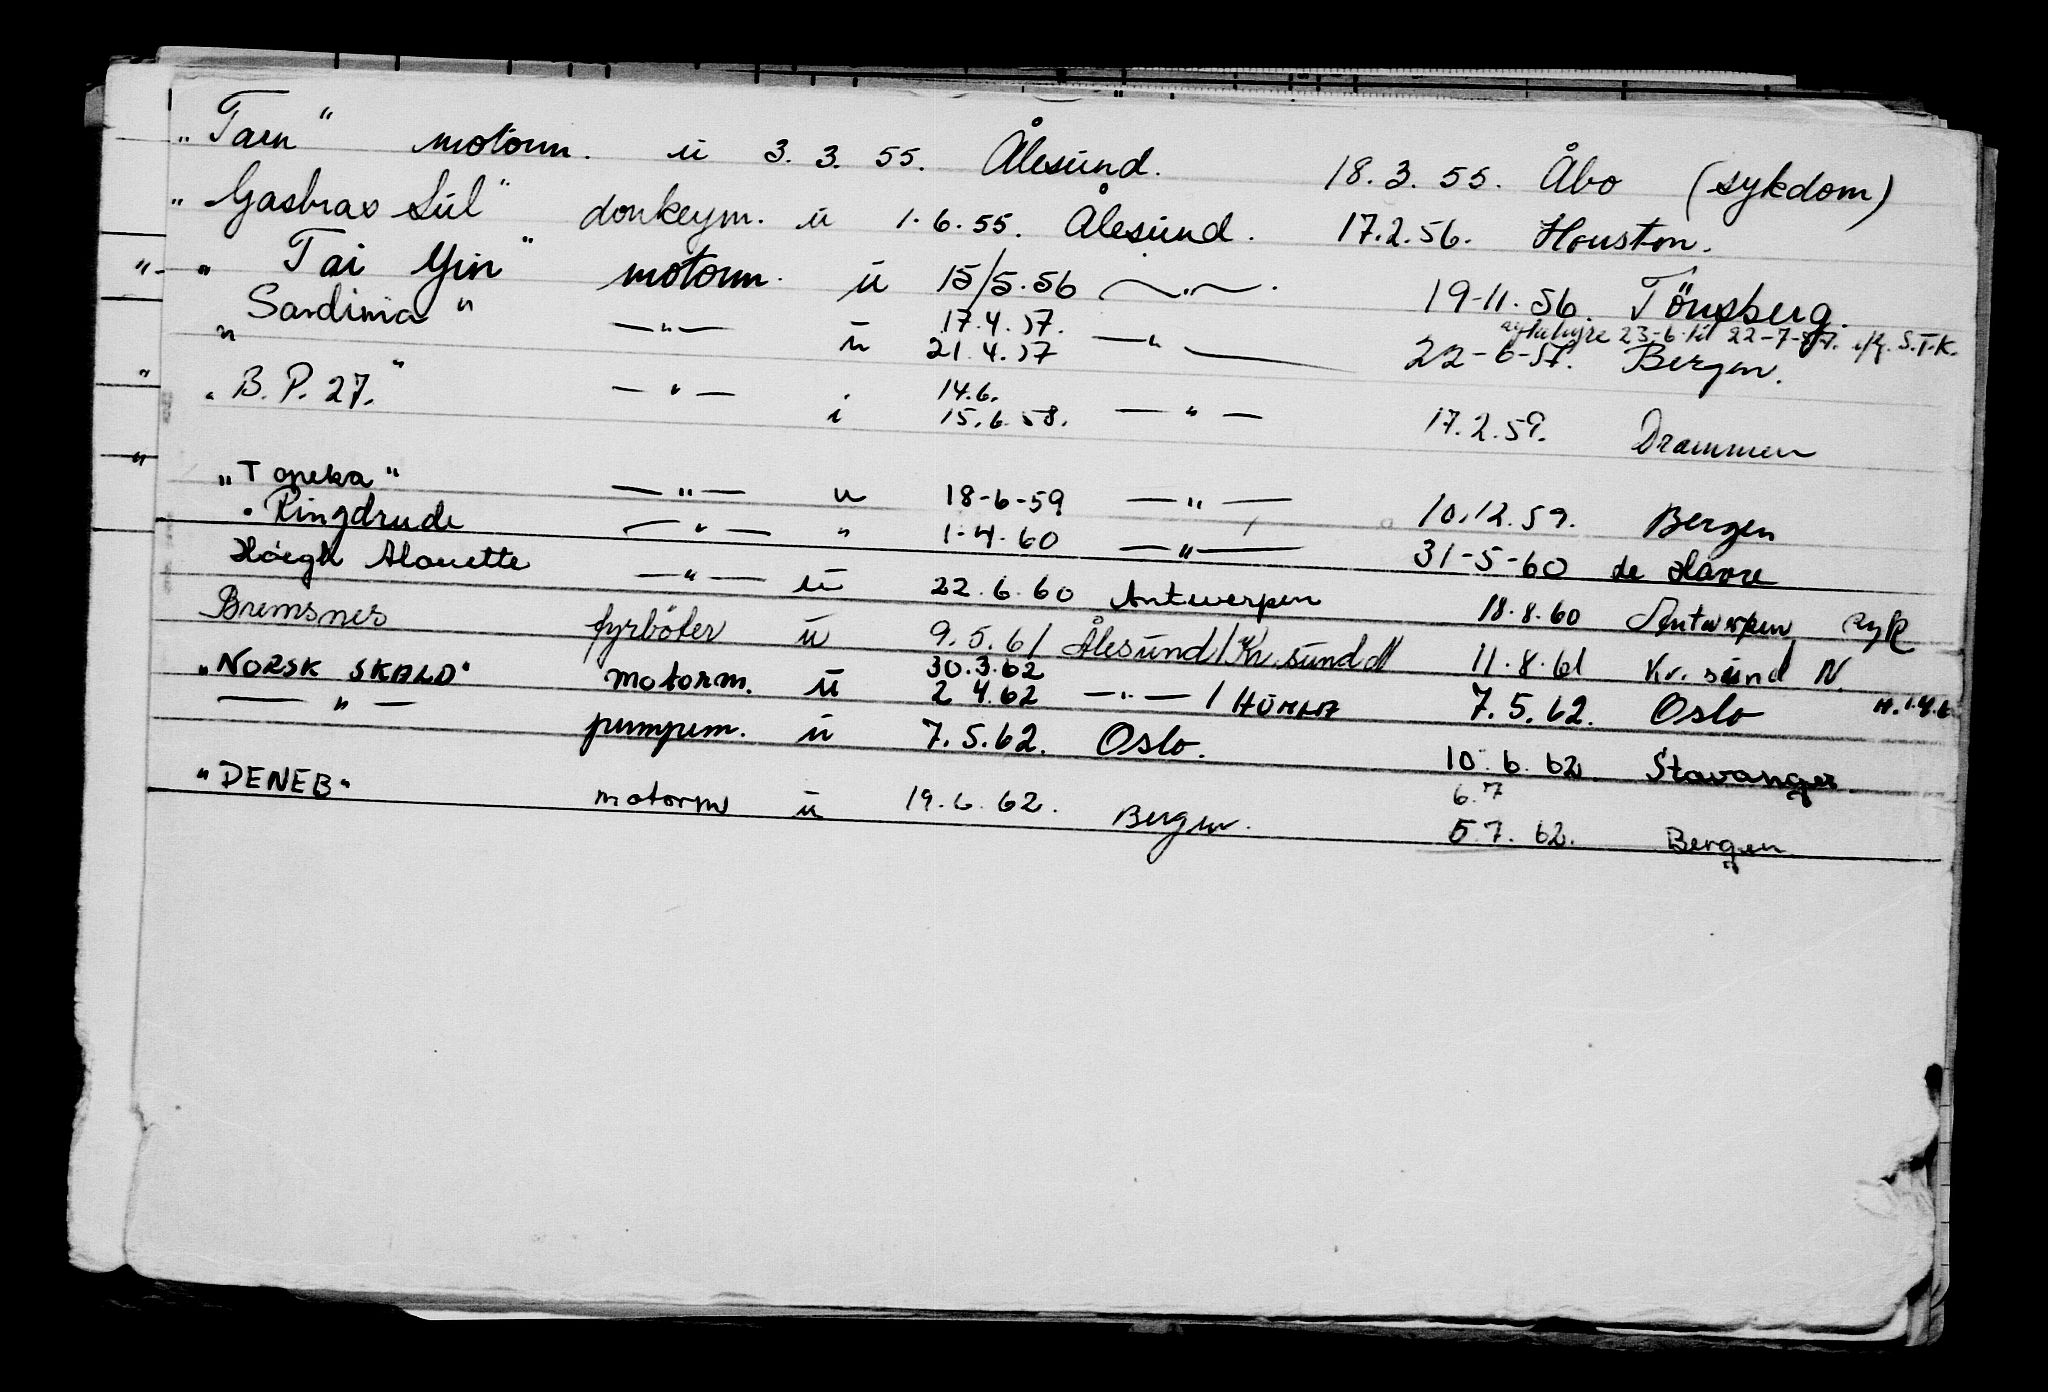 „Tarn" motorm. u 3.3.55. Ålesund. 18.3.55. Åbo (sykdom)
„Gasbras Sül" donkeym. u 1.6.55. Ålesund. 17.2.56. Houston.
"- „Tai Yin" motorm. u 15/5.56 —"— . 19-11.56. Tönsberg.
„Sardinia" —"— u 17.4.57. 21.4.57 —"— 22-6-57. Bergen. 23-6 til 22-7-57. S.T.K.
" „B.P. 27." —"— i 14.6. 15.6.58. —"— 17.2.59. Drammen
" „Topeka" —"— u 18-6-59 —"— 10.12.59. Bergen
„Ringdrude —"— " 1-4-60 —"— 31-5-60 le Havre
Höegh Alouette —"— u 22.6.60 Antwerpen 18.8.60 Antwerpen syk
Bremsnes fyrböter u 9.5.61 Ålesund/Kr.sund N 11.8.61 Kr.sund N.
„NORSK SKALD" motorm. u 30.3.62 2.4.62 —"— / 7.5.62. Oslo
—"— pumpem. u 7.5.62. Oslo. 10.6.62 Stavanger.
„DENEB" motorm u 19.6.62. Bergen. 6.7 5.7.62. Bergen